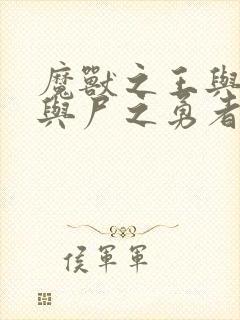 魔獸之王與
與尸之勇者
侯軍軍